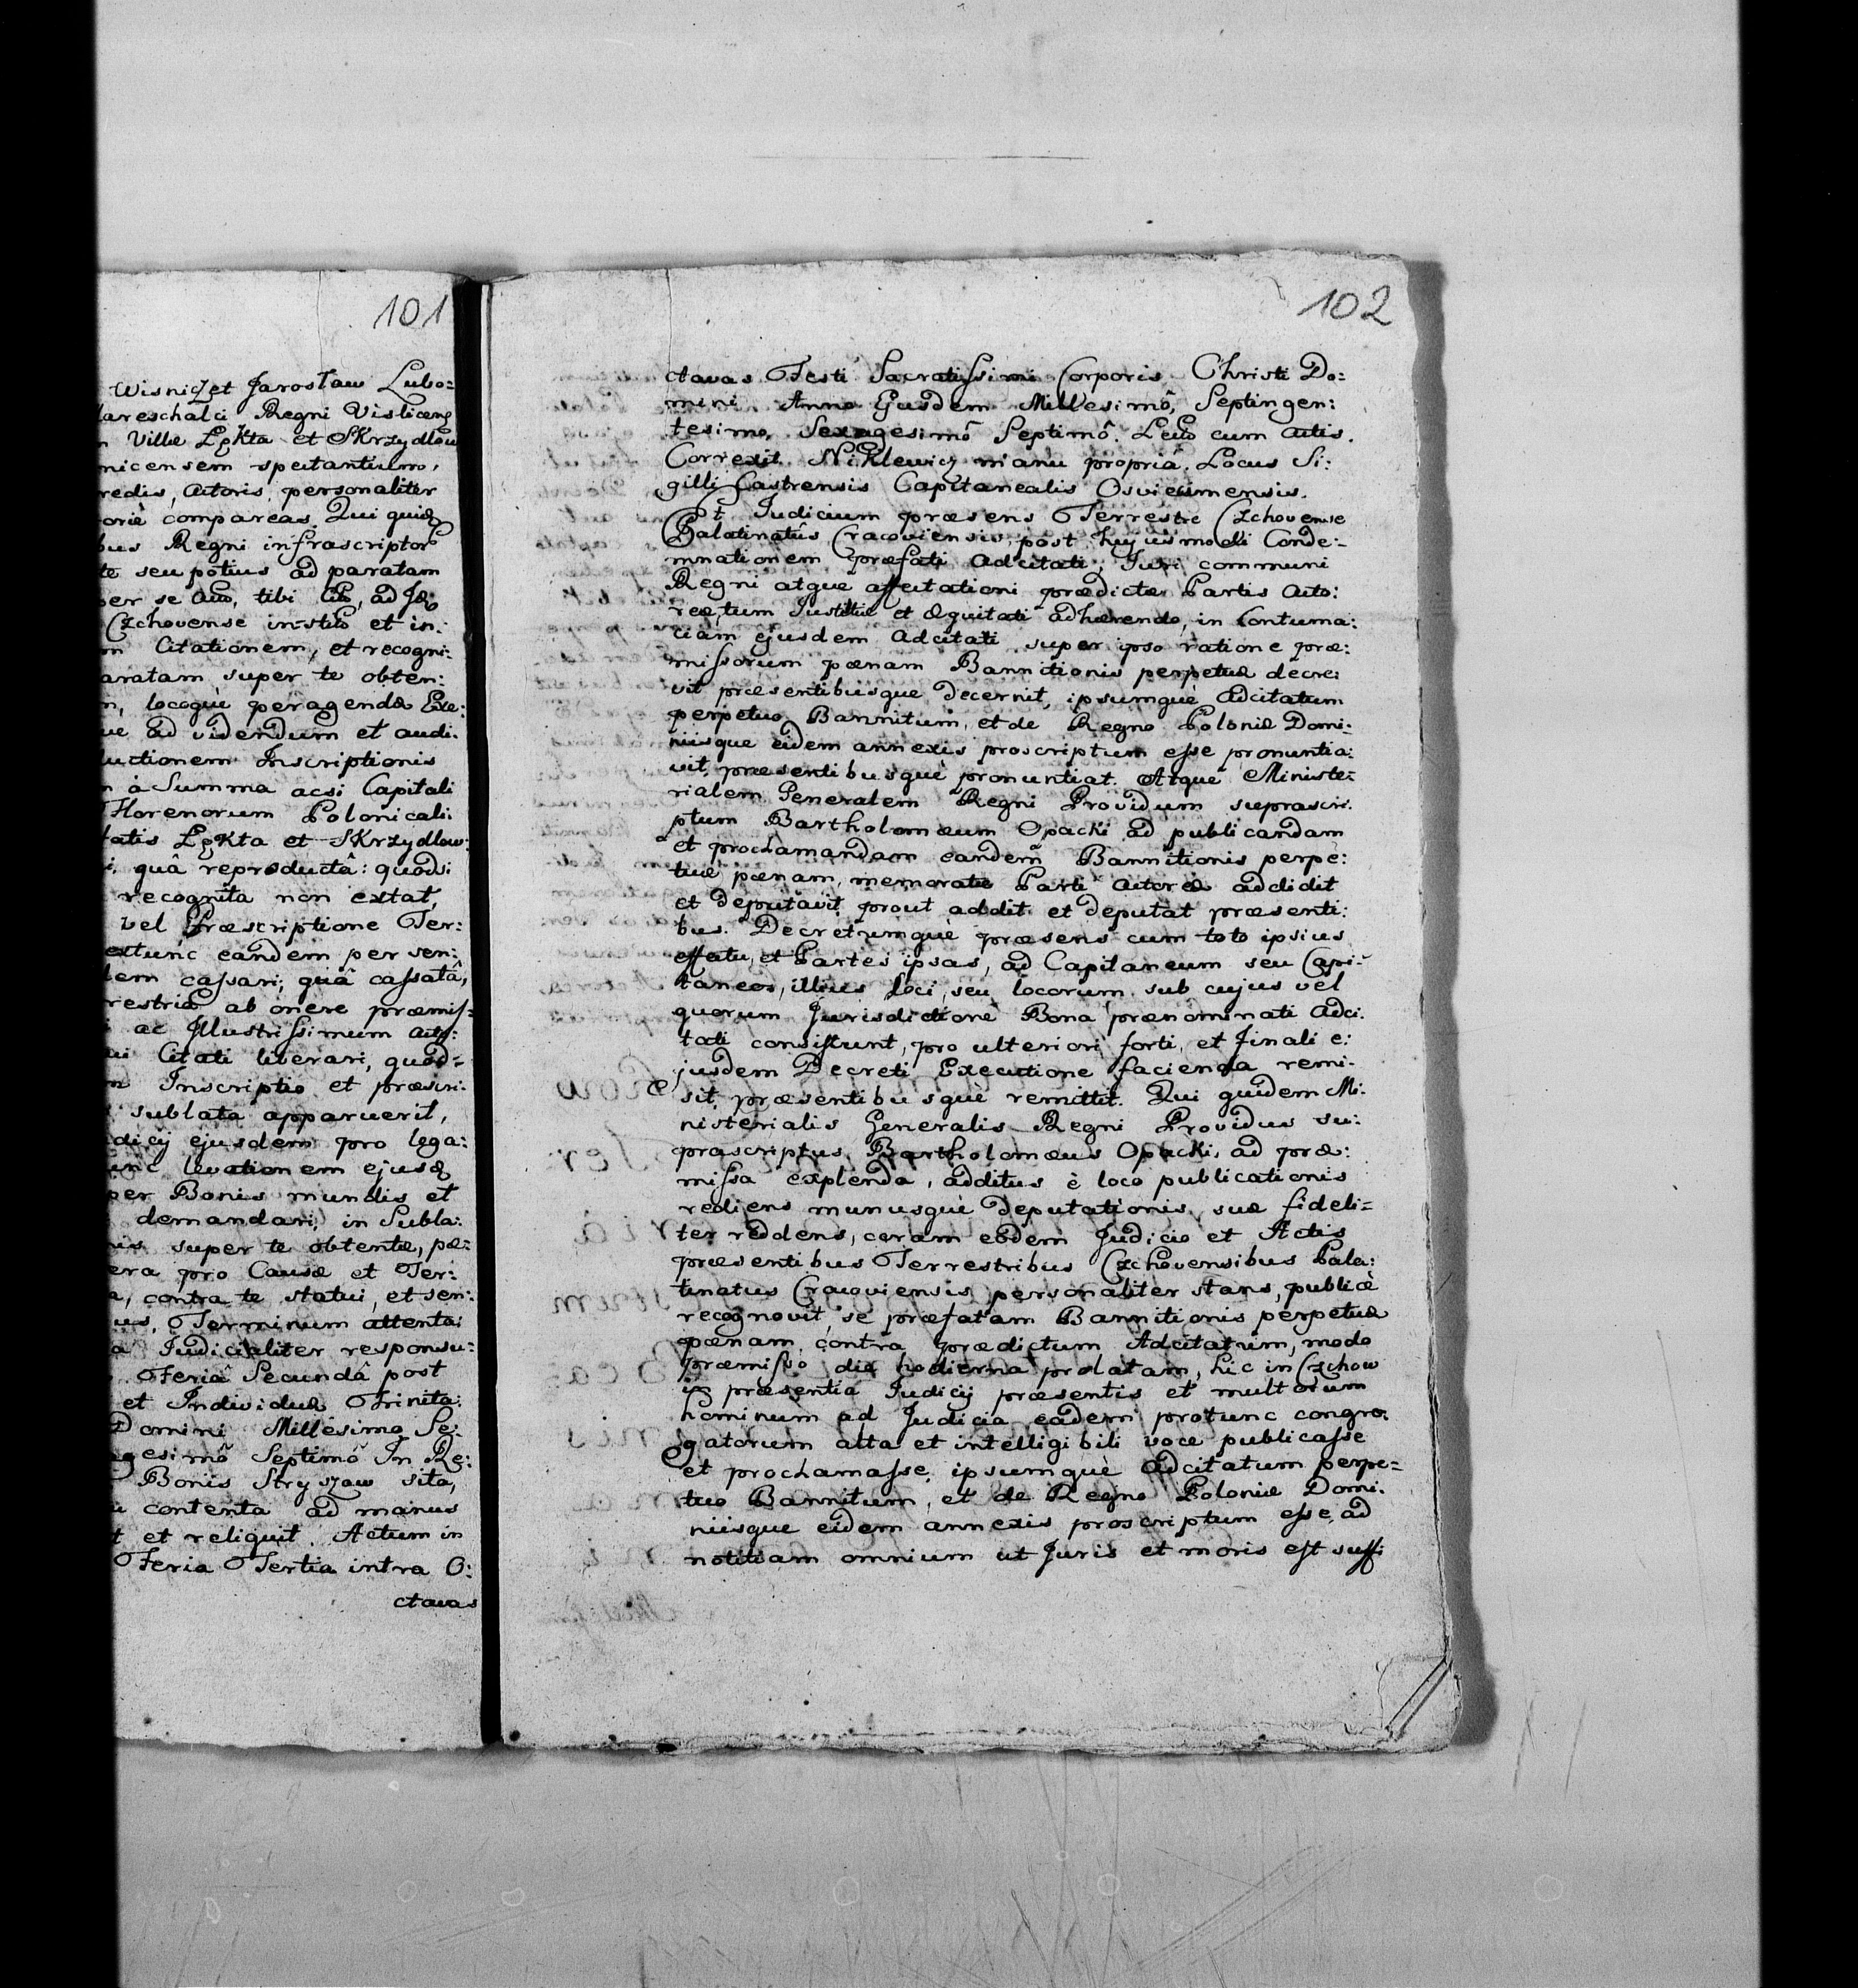 101
Wisnicz et Jarosław Lubo=
lareschalci Regni Vislicens
Villæ Łękta et Skrzydlow
nicensem spectantium,
redis, Actoris, personaliter
orie compareas. Qui quidē
bus Regni infrascriptor
te seu potius ad paratam
per se Acto, tibi
Czchovense instito et in:
m Citationem, et recogni:
aratam super te obten:
n, locoquè peragendæ Exe:
ue ad videndum et audi:
ductionem Inscriptionis
n à Summa acsi Capitali
Florenorum Polonicali:
tatis Łękta et Skrzydlow:
i, quâ reproductâ: quodsi
recognita non extat,
vel Præscriptione Ter:
extunc eandem per sen:
dem cassari, quâ cassatâ,
restria ab onere præmis=
i ac Illustrissimum
ui Citati liberari, quod=
m Inscriptio et præscri:
sublata apparuerit,
dicij ejusdem pro lega:
unc levationem ejusdē
per Bonis mundis et
demandari, in Subla:
nis super te obtentæ, pæ:
era pro Causæ et Ter:
a, contra te statui, et sen:
us, Terminum attentai
a Judicialiter responsu:
Feriâ Secundâ post
et Individuæ Trinita:
Domini Millesimo Se:
agesimô Septimô In Re:
Bonis Stryszaw sita,
u contenta ad manus
t et reliquit. Actum in
Feria Tertia intra O:
ctavas
102
ctavas Festi Sacratissimi Corporis Christi Do:
mini Anno Ejusdem Millesimô, Septingen:
tesimo, Sexagesimô Septimô. Lecto cum Actis.
Correxit Niklewicz manu propriâ. Locus Si:
gilli Castrensis Capitanealis Osviecimensis.
Et Judicium præsens Terrestre Czchovense
Palatinatûs Cracoviensis, post hujusmodi Conde:
mnationem præfati Adcitati; Juri communi
Regni atque affectationi prædictæ Partis Acto:
reæ, tum Justitiæ et æquitati adhærendo, in Contuma:
ciam ejusdem Adcitati super ipso ratione præ:
missorum pœnam Bannitionis perpetuæ decre:
vit præsentibusque decernit, ipsumquè Adcitatum
perpetuo Bannitum, et de Regno Poloniæ Domi:
niisque eidem annexis proscriptum esse pronuntia:
vit, præsentibusquè pronuntiat. Atque Ministe:
rialem Generalem Regni Providum suprascri:
ptum Bartholomæum Opacki ad publicandam
et proclamandam eandem Bannitionis perpe:
tuæ pœnam, memoratæ Parti Actoreæ addidit
et deputavit, prout addit et deputat præsenti:
bus. Decretumque præsens cum toto ipsius
effectu, et Partes ipsas, ad Capitaneum seu Capi:
taneos, illius loci, seu locorum sub cujus vel
quorum Jurisdictione Bona prænominati Adci:
tati consistunt, pro ulteriori forti, et finali e:
jusdem Decreti Executione facienda remi:
sit, præsentibusquè remittit. Qui quidem Mi:
nisterialis Generalis Regni Providus su:
prascriptus Bartholomæus Opacki, ad præ:
missa explenda, additus è loco publicationis
rediens munusquè deputationis suæ fideli=
ter reddens, coram eodem Judicio et Actis
præsentibus Terrestribus Czchovensibus Pala:
tinatus Cracoviensis personaliter stans, publicè
recognovit, se præfatam Bannitionis perpetuæ
pœnam contra prædictum Adcitatum, modo
præmisso die hodierna prolatam, hic in Czchow
in præsentia Judicij præsentis et multorum
hominum ad Judicia eadem protunc congre:
gatorum alta et intelligibili voce publicasse
et proclamasse, ipsumquè Adcitatum perpe=
tuo Bannitum, et de Regno Poloniæ Domi:
niisque eidem annexis proscriptum esse, ad
notitiam omnium ut Juris et moris est suffi